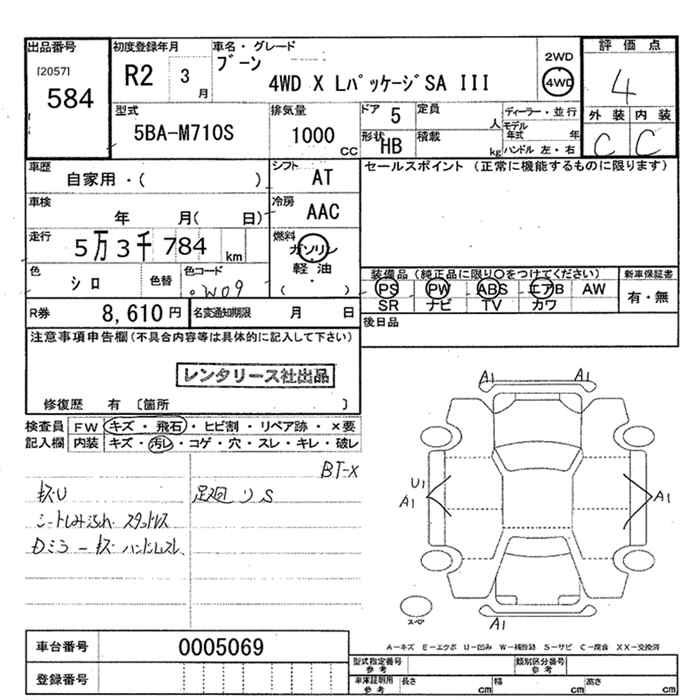 出品番号
[2057]
584
初度登録年月
R2 3月
車名・グレード
ブーン
4WD X LパッケージSA III
2WD
4WD
評価点
4
外装 内装
C C
型式
5BA-M710S
排気量
1000 CC
ドア 5
形状 HB
定員 人
積載 kg
ディーラー・並行
モデル年式 年
ハンドル 左・右
車歴
自家用・( )
シフト
AT
セールスポイント (正常に機能するものに限ります)
車検
年 月( 日)
冷房
AAC
走行
5万3千784 km
燃料
ガソリン
軽油
( )
色
シロ
色替
色コード
W09
装備品(純正品に限り○をつけてください)
PS PW ABS エアB AW
SR ナビ TV カワ
新車保証書
有・無
R券 8,610円
名変通知期限 月 日
後日品
注意事項申告欄(不具合内容等は具体的に記入して下さい)
レンタリース社出品
修復歴 有 〔箇所 〕
検査員記入欄
FW キズ・飛石・ヒビ割・リペア跡・×要
内装 キズ・汚レ・コゲ・穴・スレ・キレ・破レ
BT-X
キズU 足廻りS
シートしみ汚れ スタットレス
Dミラーキズ ハンドルスレ
A1 A1
U1
A1 A1
A1
スペア
A-キズ E-エクボ U-凹み W-補修跡 S-サビ C-腐食 XX-交換済
車台番号 0005069
登録番号
型式指定番号 参考
類別区分番号 参考
車庫証明用 参考
長さ cm 幅 cm 高さ cm